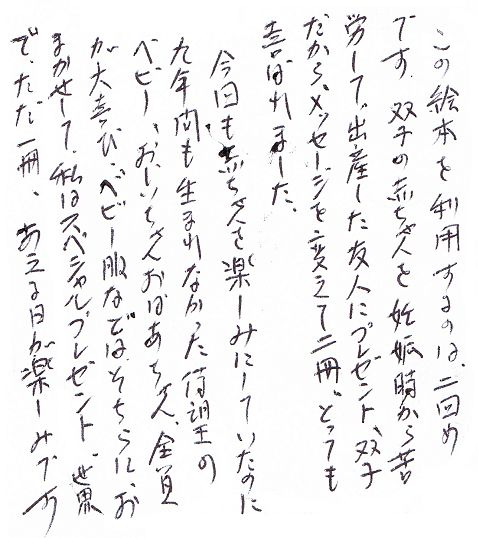 この絵本を利用するのは、二回め
です。双子の赤ちゃんを妊娠時から苦
労して出産した友人にプレゼント、双子
だから、メッセージを変えて二冊。とっても
喜ばれました。
今回も赤ちゃんを楽しみにしていたのに
九年間も生まれなかった待望の
ベビー、おじいちゃんおばあちゃん、全員
が大喜び、ベビー服などはそちらにお
まかせして、私はスペシャルプレゼント、世界
で、ただ一冊、あえる日が楽しみです